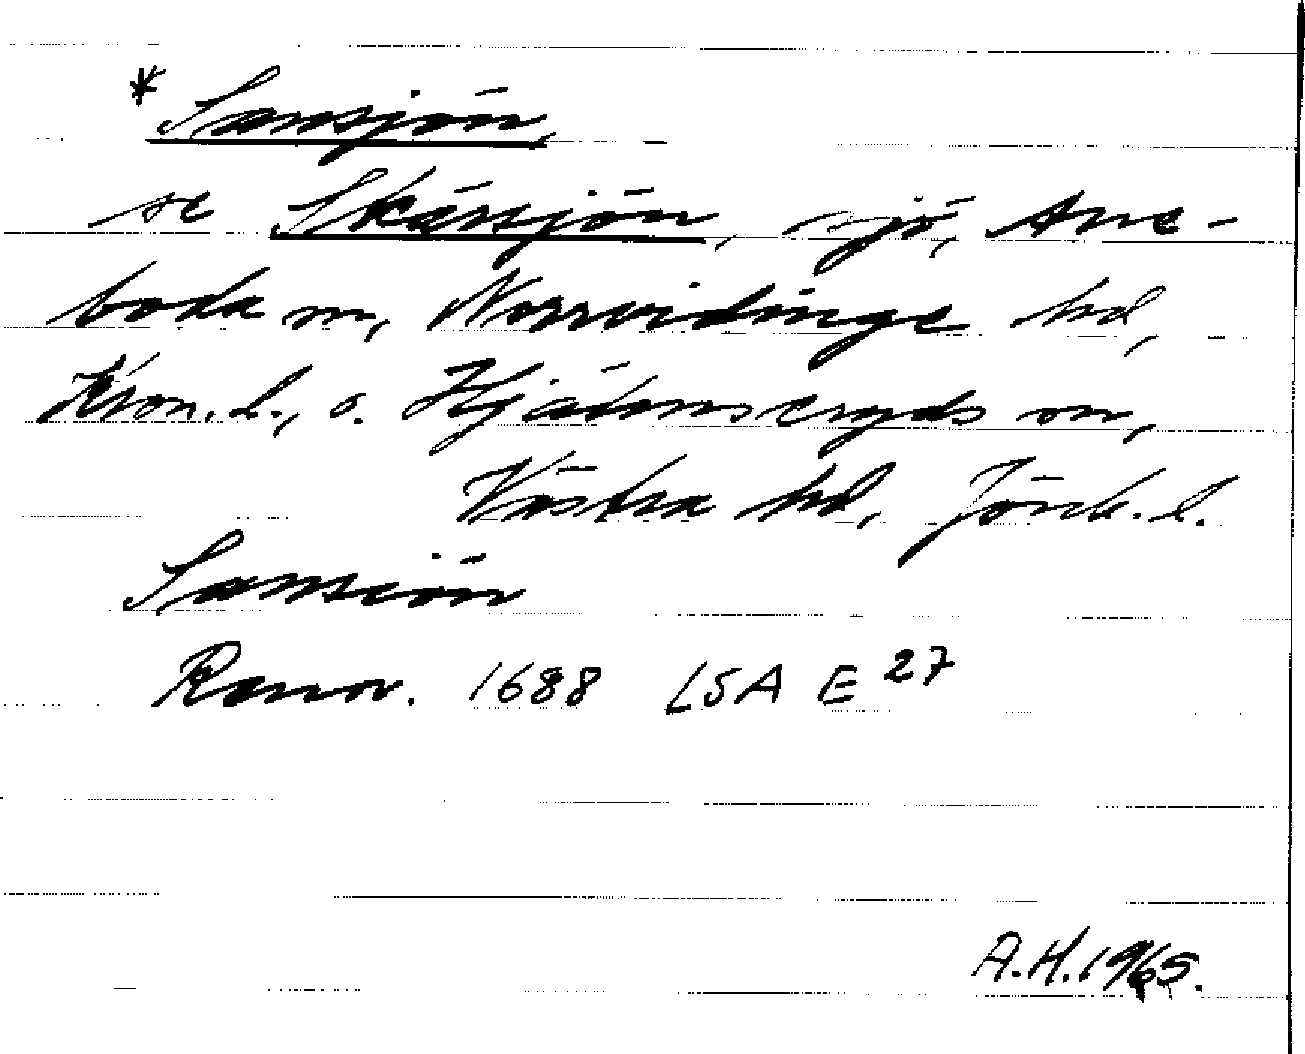 *Samsjön,
se Skärsjön, sjö, Ane-
boda sn, Norrvidinge hd,
Kron. l., o. Hjälmseryds sn,
Västra hd, Jönk. l.
Samsiön
Ranov. 1688 LSA E 27
A.H. 1965.